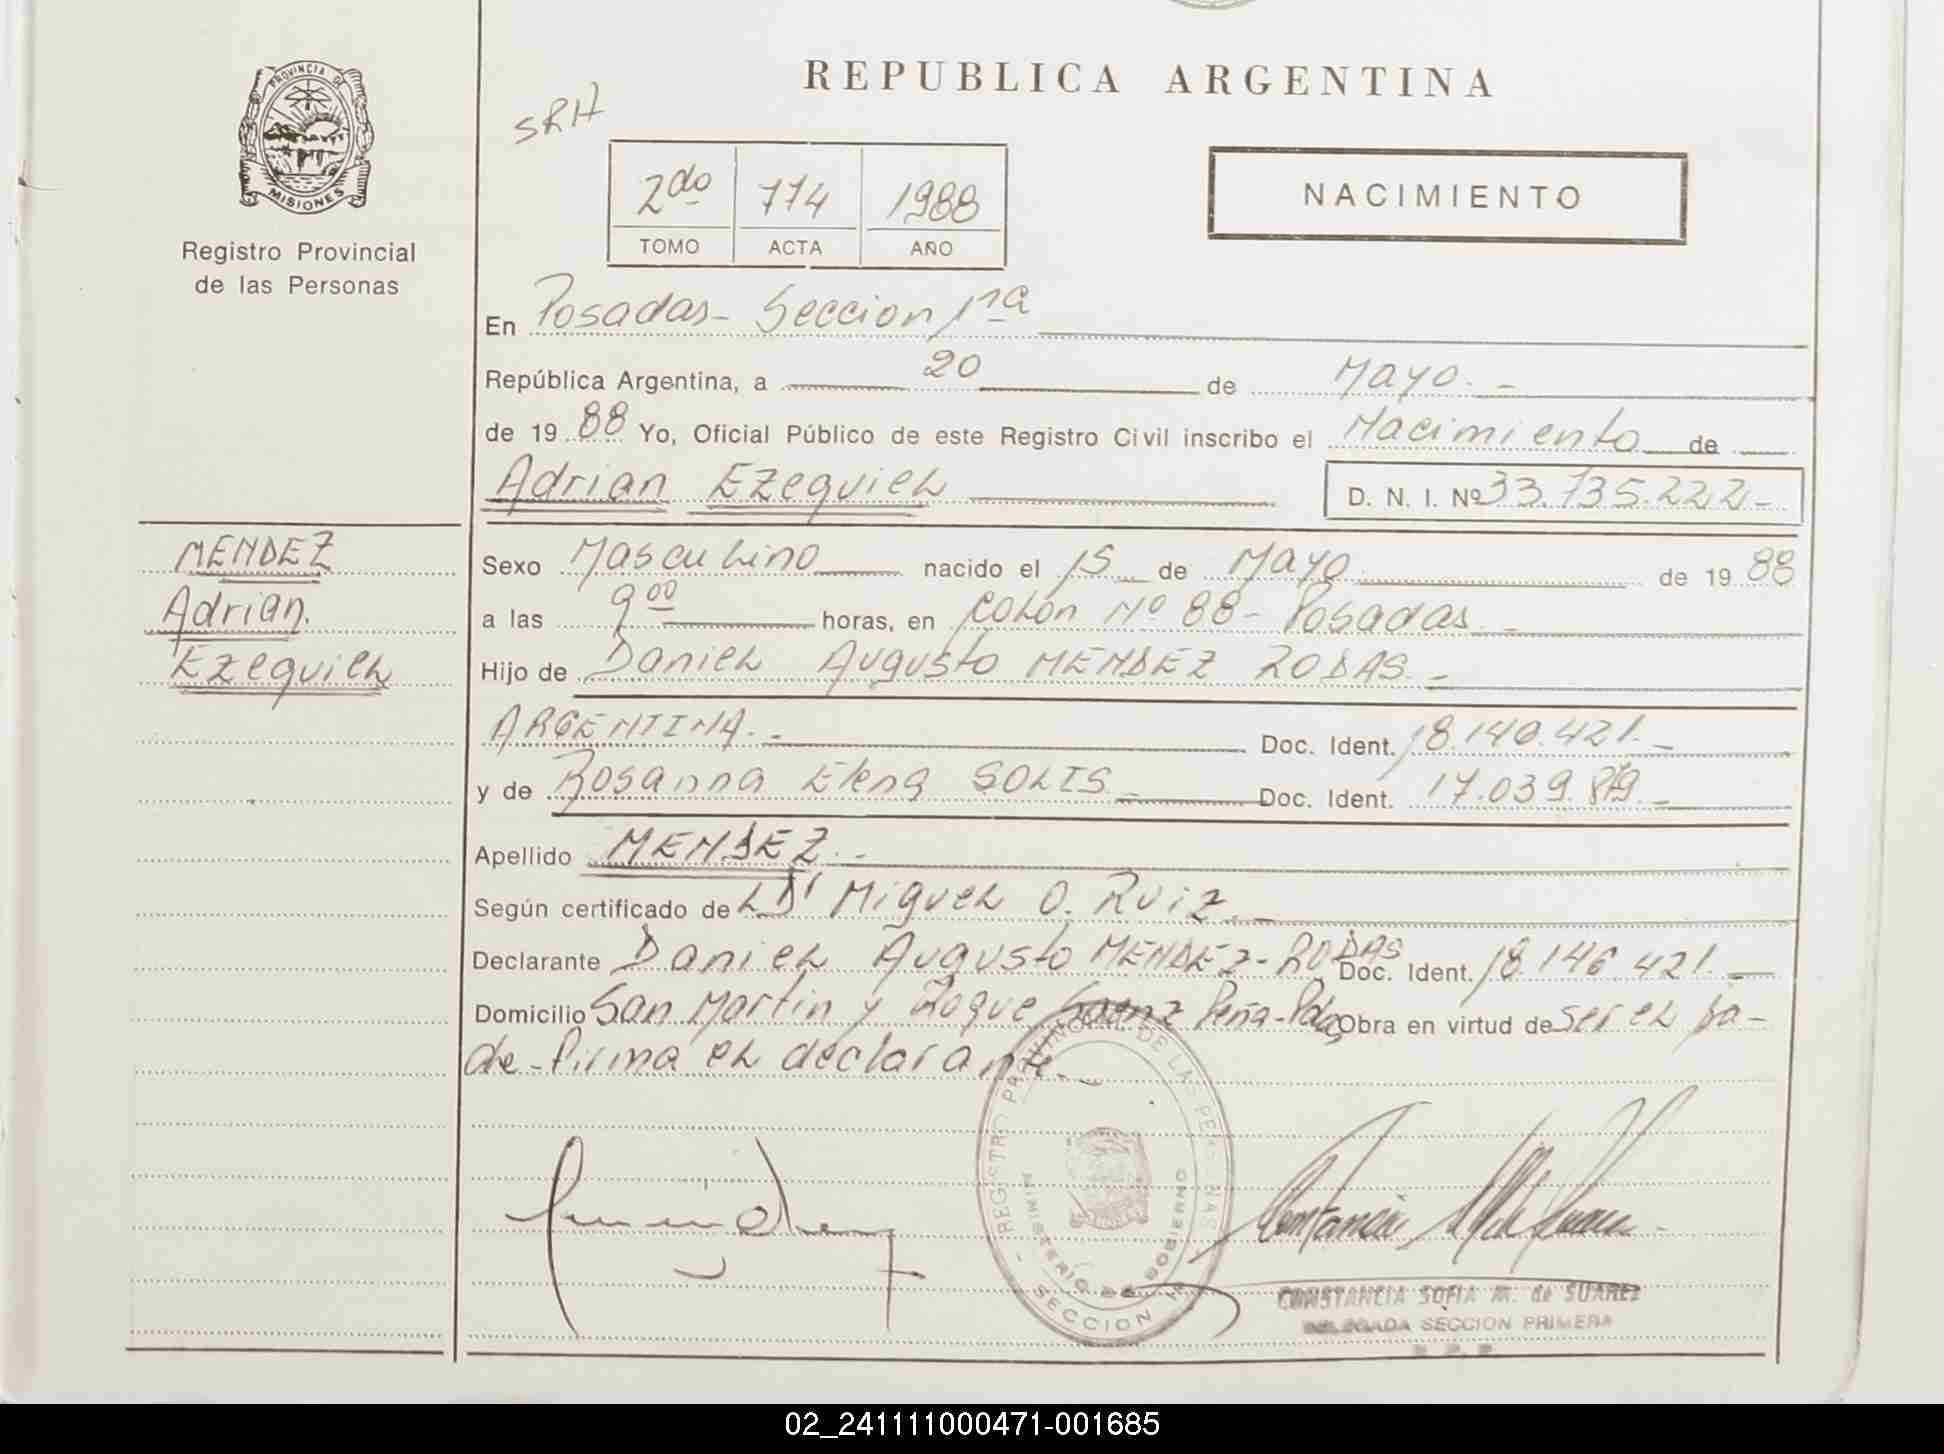 REPUBLICA ARGENTINA
PROVINCIA DE
MISIONES
Registro Provincial
de las Personas
SRH
2do 774 1988
TOMO ACTA AÑO
NACIMIENTO
En Posadas - Seccion 1ra
República Argentina, a 20 de Mayo. -
de 19 88 Yo, Oficial Público de este Registro Civil inscribo el Nacimiento de
Adrian Ezequiel D. N. I. Nº 33.735.222-
MENDEZ
Adrian.
Ezequiel
Sexo Masculino nacido el 15 de Mayo de 19 88
a las 9 00 horas, en Colon Nº 88 - Posadas. -
Hijo de Daniel Augusto MENDEZ RODAS. -
ARGENTINA. - Doc. Ident. 18.140.421. -
y de Rosanna Elena SOLIS. - Doc. Ident. 17.039.879. -
Apellido MENDEZ. -
Según certificado de LDr Miguel O. Ruiz. -
Declarante Daniel Augusto MENDEZ - RODAS Doc. Ident. 18.146.421. -
Domicilio San Martin y Roque Saenz Peña - Pdas Obra en virtud de ser el pa-
dre - firma el declarante. -
REGISTRO PROVINCIAL DE LAS PERSONAS
MINISTERIO DE GOBIERNO
SECCION 1ª
CONSTANCIA SOFIA M. de SUAREZ
DELEGADA SECCION PRIMERA
R. P. P.
02_241111000471-001685